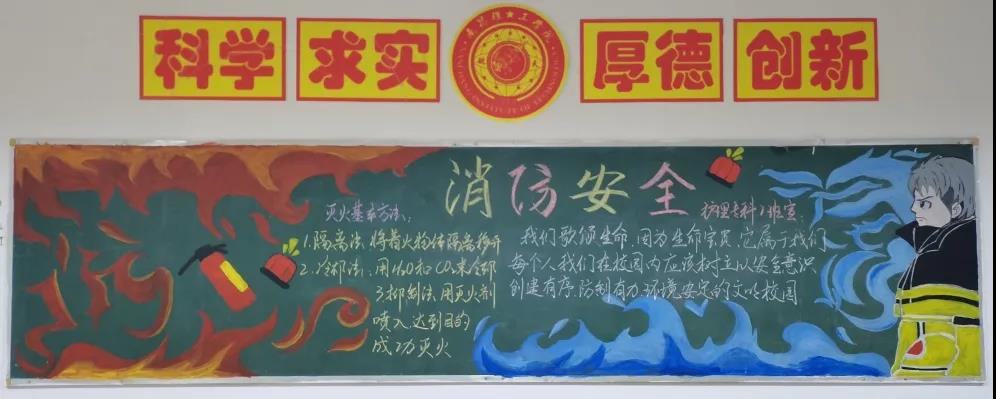 科学
求实
厚德
创新
消防安全
灭火基本方法:
1.隔离法、将着火物体隔离移开
2.冷却法、用H2O和CO2来冷却
3抑制法、用灭火剂
喷入达到目的
成功灭火
护理专科1班宣:
我们歌颂生命,因为生命宝贵,它属于我们
每个人我们在校园内应该树立以安全意识
创建有序防制有力环境安定的文明校园